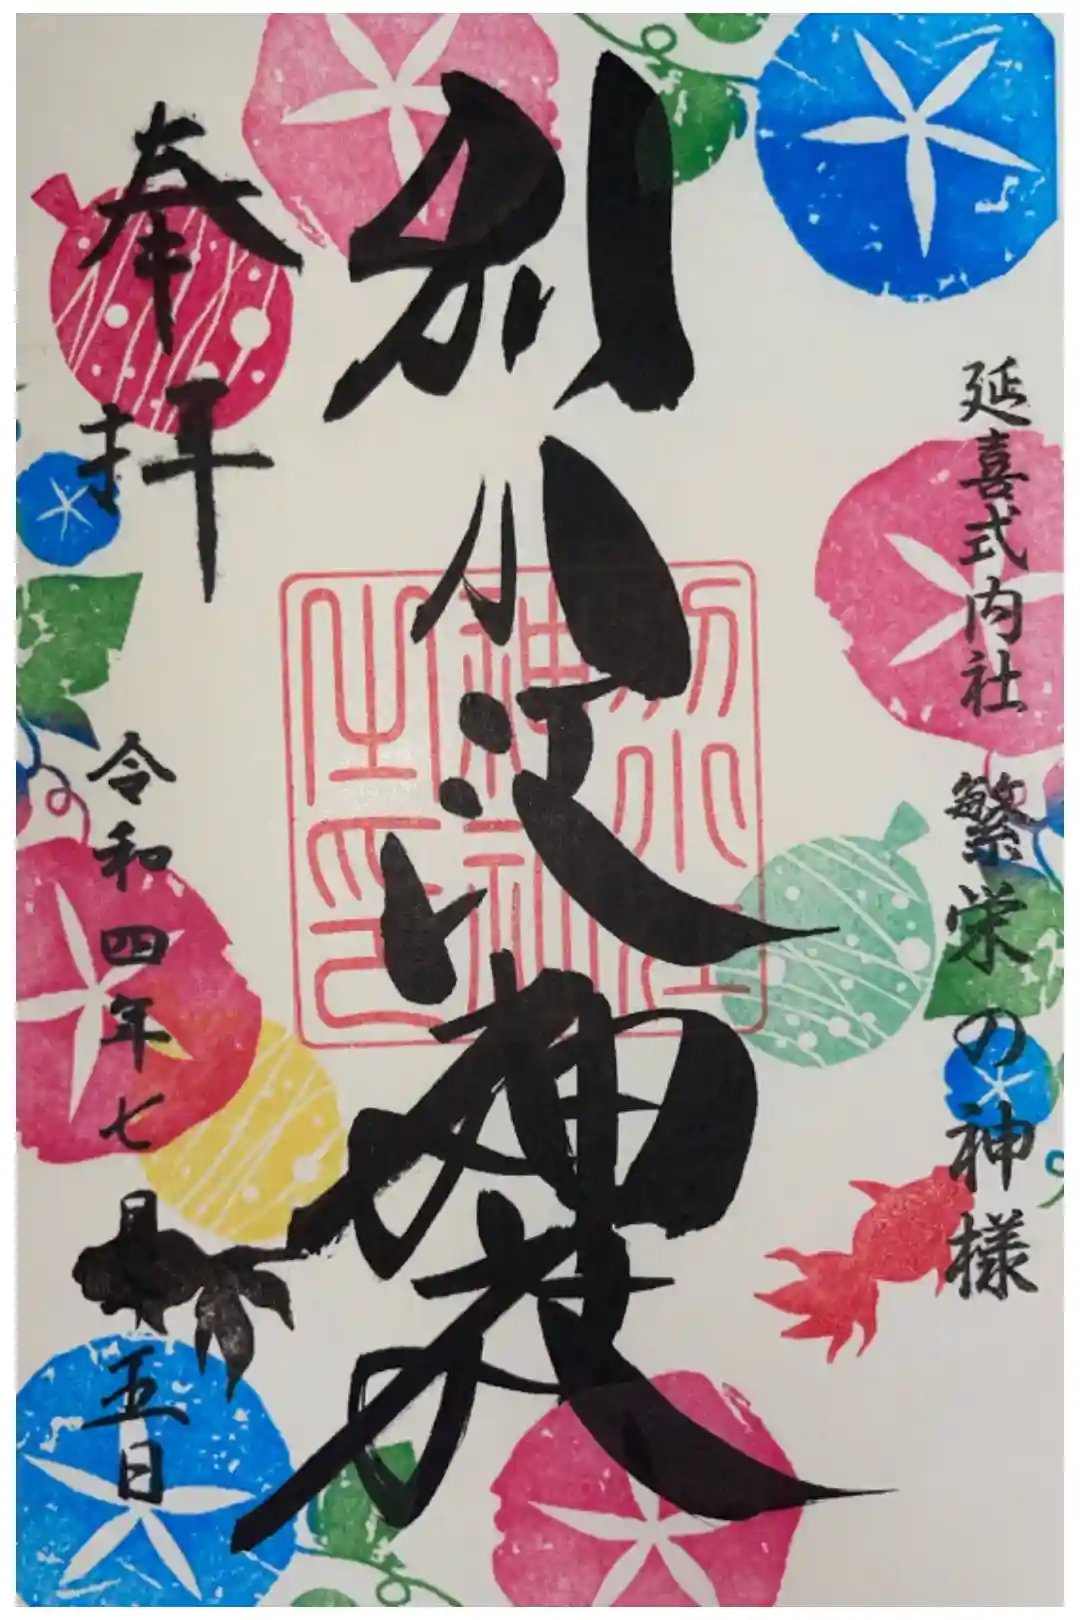 延喜式内社 繁栄の神様
別小江神社
別小江神社之印
奉拝
令和四年七月 五日